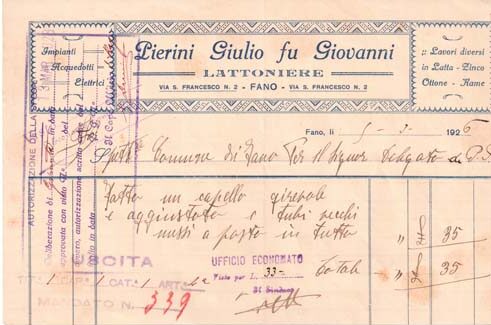 Impianti
Acquedotti
Elettrici
Pierini Giulio fu Giovanni
LATTONIERE
VIA S. FRANCESCO N. 2 - FANO - VIA S. FRANCESCO N. 2
Lavori diversi
in Latta - Zinco
Ottone - Rame
Fano, li 5-3-1926
Spett. Comune di Fano Per il Signor Delegato di P.S.
Fatto un capello girevole
e aggiustato e tubi vecchi
messi a posto in tutto " 35
Totale " 35
UFFICIO ECONOMATO
Visto per L. 33-
Il Sindaco
AUTORIZZAZIONE DELLA
Deliberazione di
in data
approvata con visto
del
autorizzazione scritta
in data
Il Capo
USCITA
TIT. 1 CAP. 1 CAT. 1 ART.
MANDATO N. 339